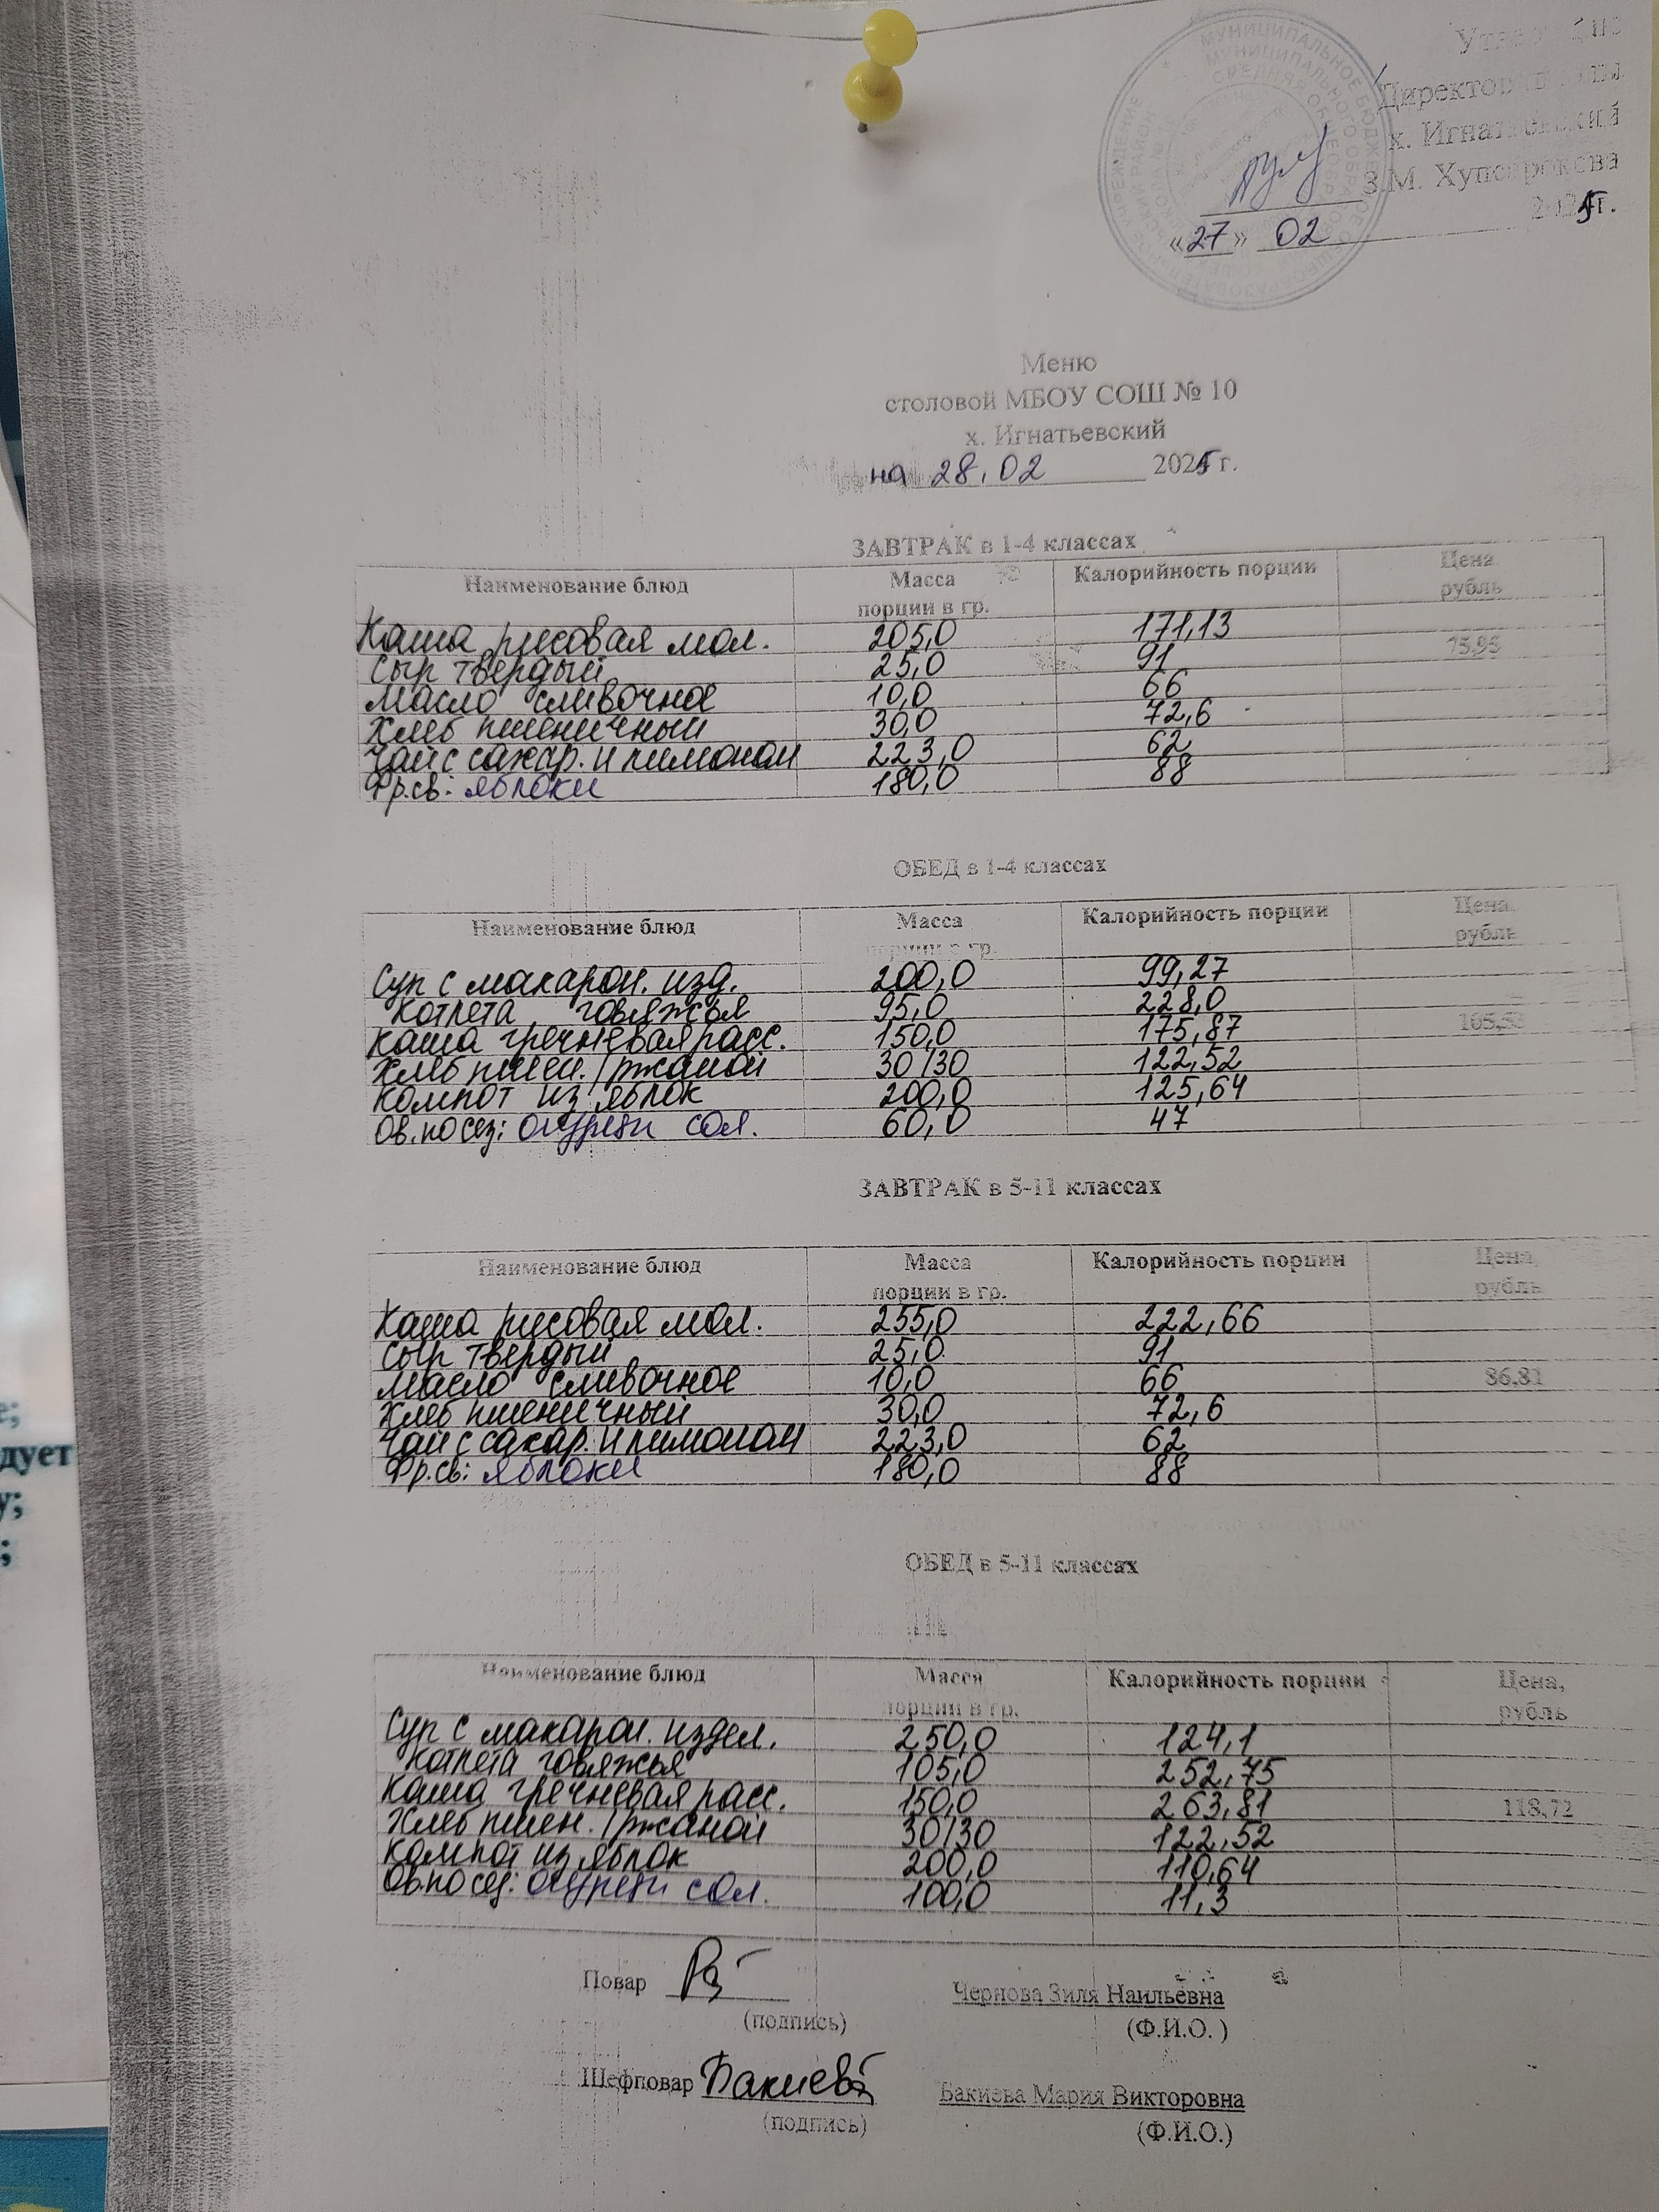 Директор
х. Игнатьевский
З.М. Хупсарокова
«27» 02 2025г.
МУНИЦИПАЛЬНОЕ БЮДЖЕТНОЕ
Меню
столовой МБОУ СОШ № 10
х. Игнатьевский
на 28.02 2025 г.
ЗАВТРАК в 1-4 классах
Наименование блюд Масса порции в гр. Калорийность порции Цена рубль
Каша рисовая мол. 205,0 171,13 75,95
Сыр твердый 25,0 91
Масло сливочное 10,0 66
Хлеб пшеничный 30,0 72,6
Чай с сахар. и лимоном 223,0 62
Фр.св: яблоки 180,0 88
ОБЕД в 1-4 классах
Наименование блюд Масса порции в гр. Калорийность порции Цена рубль
Суп с макарон. изд. 200,0 99,27
Котлета говяжья 95,0 228,0
Каша гречневая расс. 150,0 175,87
Хлеб пшен. / ржаной 30/30 122,52
Компот из яблок 200,0 125,64
Ов.по сез: огурецы сол. 60,0 47
ЗАВТРАК в 5-11 классах
Наименование блюд Масса порции в гр. Калорийность порции Цена, рубль
Каша рисовая мол. 255,0 222,66
Сыр твердый 25,0 91
Масло сливочное 10,0 66 86,81
Хлеб пшеничный 30,0 72,6
Чай с сахар. и лимоном 223,0 62
Фр.св: яблоки 180,0 88
ОБЕД в 5-11 классах
Наименование блюд Масса порции в гр. Калорийность порции Цена, рубль
Суп с макарон. издел. 250,0 124,1
Котлета говяжья 105,0 252,75
Каша гречневая расс. 150,0 263,81 118,72
Хлеб пшен. / ржаной 30/30 122,52
Компот из яблок 200,0 110,64
Ов.по сез: огурецы сол. 100,0 11,3
Повар Чернова Зиля Наильевна
(подпись) (Ф.И.О. )
Шефповар Бакиева Бакиева Мария Викторовна
(подпись) (Ф.И.О.)
дует